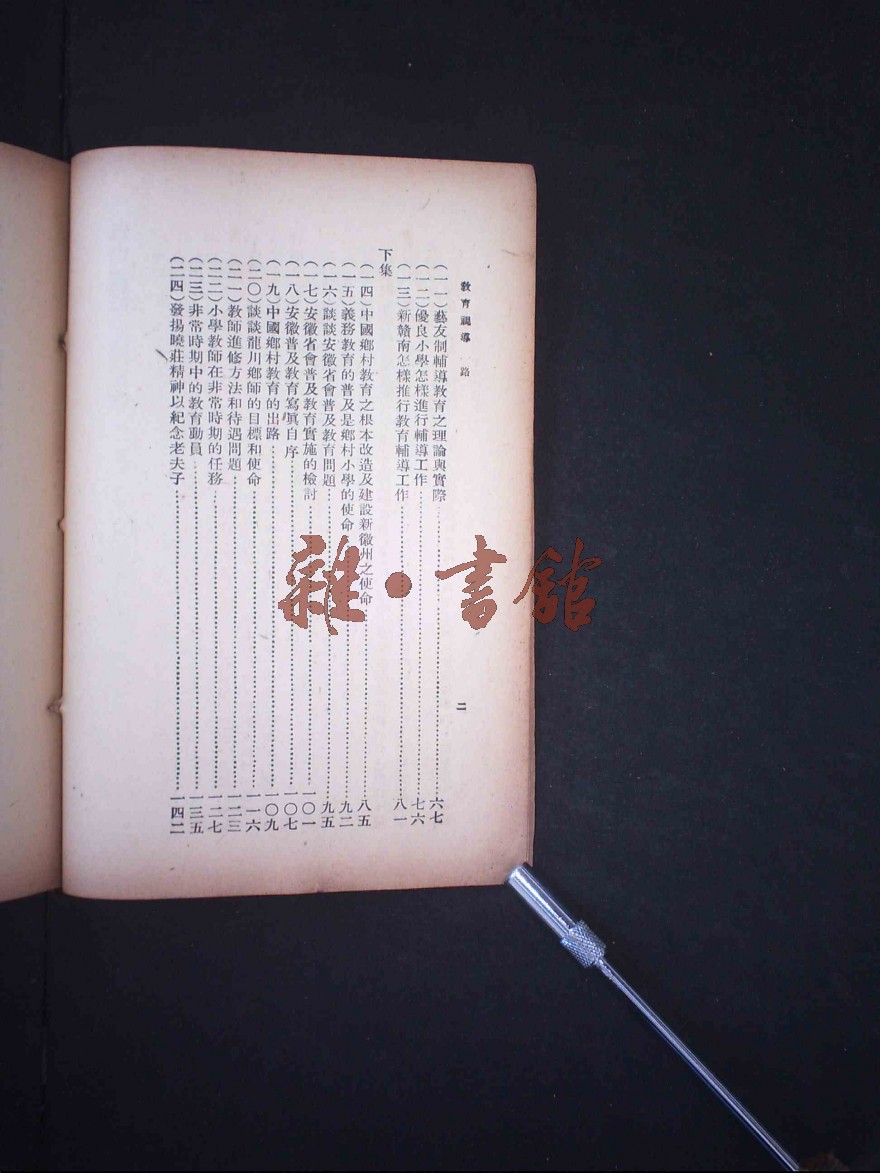 教育視導一路
二
(一一)藝友制輔導教育之理論與實際……六七
(一二)優良小學怎樣進行輔導工作……七六
(一三)新贛南怎樣推行教育輔導工作……八一
下集
(一四)中國鄉村教育之根本改造及建設新徽州之使命……八五
(一五)義務教育的普及是鄉村小學的使命……九二
(一六)談談安徽省會普及教育問題……九五
(一七)安徽省會普及教育實施的檢討……一〇一
(一八)安徽普及教育寫真自序……一〇七
(一九)中國鄉村教育的出路……一〇九
(二〇)談談龍川鄉師的目標和使命……一一六
(二一)教師進修方法和待遇問題……一二三
(二二)小學教師在非常時期的任務……一二七
(二三)非常時期中的教育動員……一三五
(二四)發揚曉莊精神以紀念老夫子……一四二
雜·書館